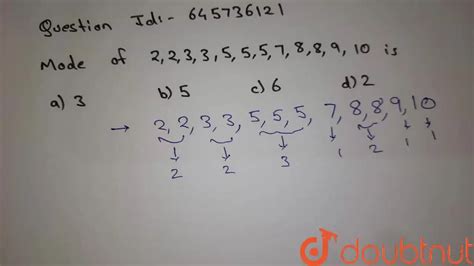 Question Id:- 645736121
Mode of 2,2,3,3,5,5,5,7,8,8,9,10 is
a) 3 b) 5 c) 6 d) 2
→ 2,2,3,3,5,5,5,7,8,8,9,10
↓ ↓ ↓ ↓ ↓ ↓ ↓
2 2 3 1 2 1 1
doubtnut